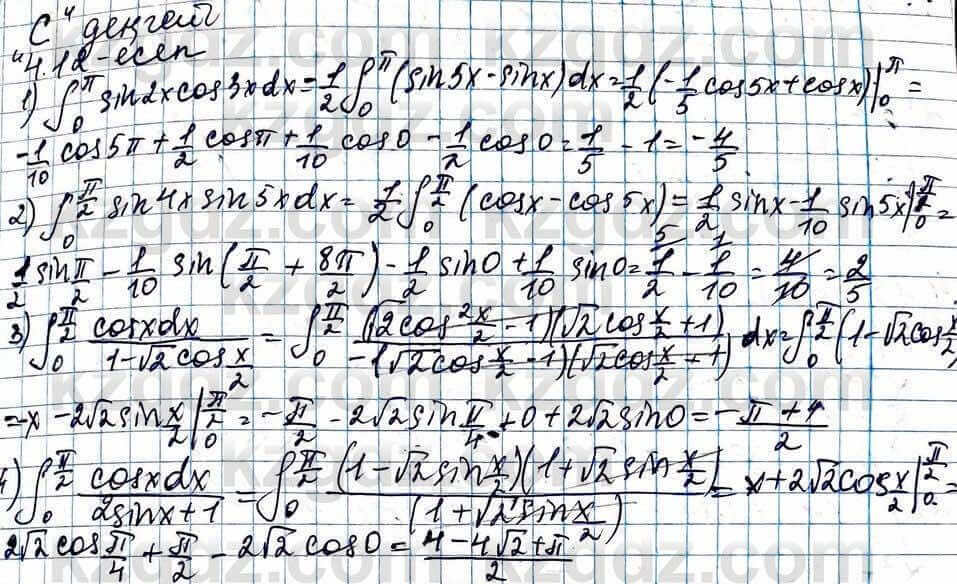 "С" деңгей
4.12-есеп
1) ∫₀^π sin2xcos3xdx = 1/2 ∫₀^π (sin5x - sinx)dx = 1/2 (-1/5 cos5x + cosx)|₀^π =
-1/10 cos5π + 1/2 cosπ + 1/10 cos0 - 1/2 cos0 = 1/5 - 1 = -4/5
2) ∫₀^(π/2) sin4x sin5xdx = 1/2 ∫₀^(π/2) (cosx - cos5x) = 1/2 sinx - 1/10 sin5x|₀^(π/2) =
1/2 sin π/2 - 1/10 sin(π/2 + 8π/2) - 1/2 sin0 + 1/10 sin0 = 1/2 - 1/10 = 4/10 = 2/5
3) ∫₀^(π/2) cosxdx / (1-√2cos x/2) = ∫₀^(π/2) (√2cos x/2 - 1)(√2cos x/2 + 1) / -(√2cos x/2 - 1)(√2cos x/2 + 1) dx = ∫₀^(π/2) (1-√2cos x/2)
= -x - 2√2sin x/2 |₀^(π/2) = -π/2 - 2√2sin π/4 + 0 + 2√2sin0 = -(π+4)/2
4) ∫₀^(π/2) cosxdx / (2sinx+1) = ∫₀^(π/2) (1-√2sin x/2)(1+√2sin x/2) / (1+√2sin x/2) = x + 2√2cos x/2 |₀^(π/2) =
2√2cos π/4 + π/2 - 2√2cos0 = (4-4√2+π)/2
kzgdz.com